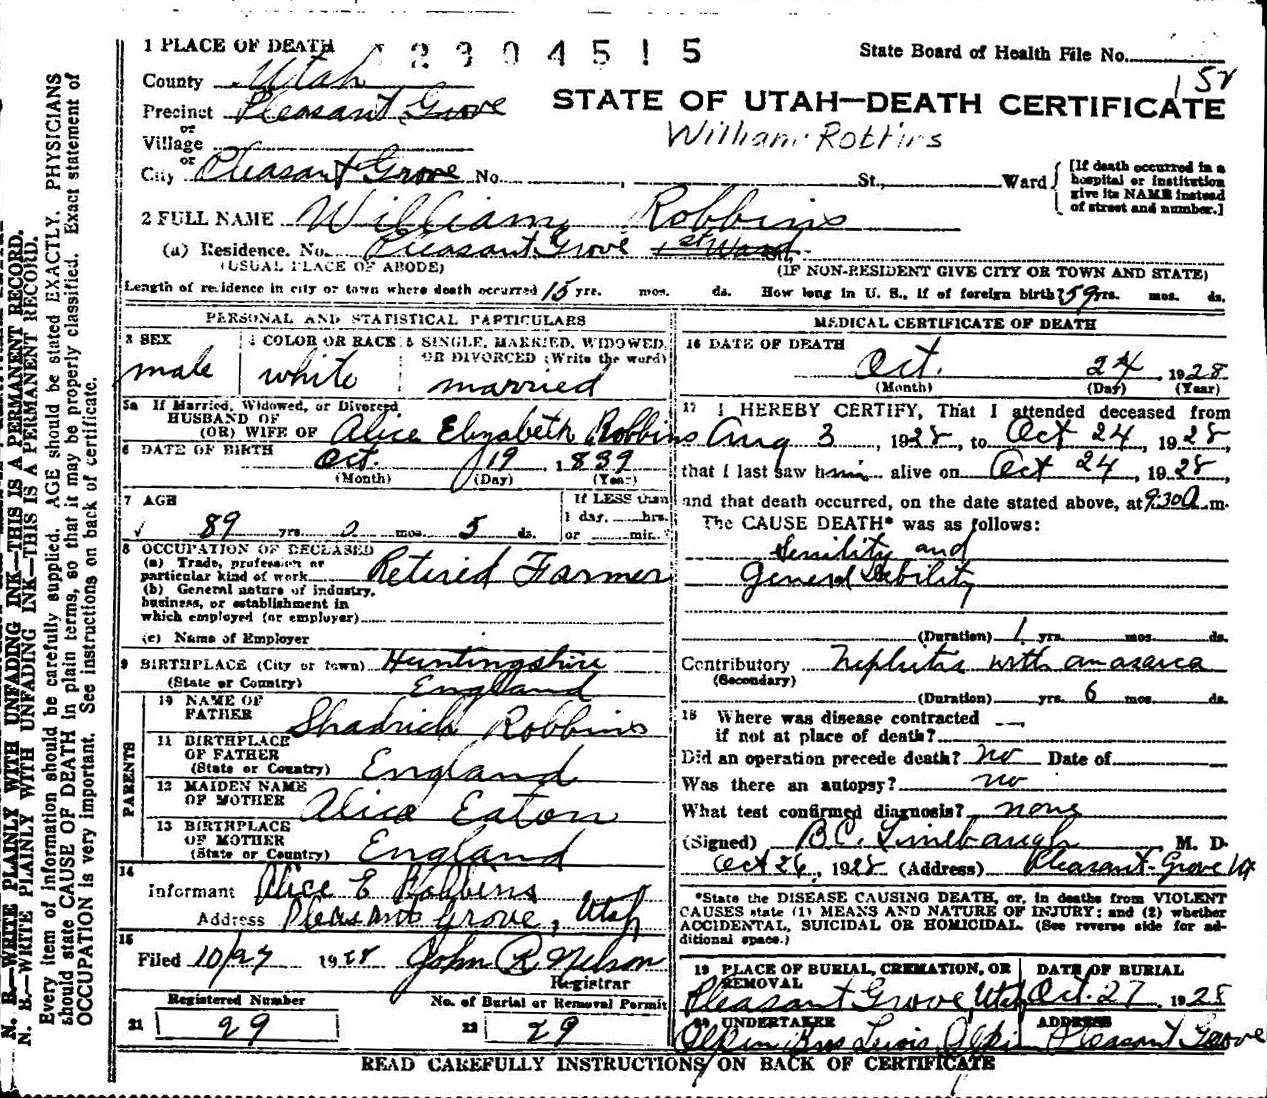 1 PLACE OF DEATH
2 3 0 4 5 1 5
State Board of Health File No.
152
County Utah
STATE OF UTAH—DEATH CERTIFICATE
Precinct Pleasant Grove
William Robbins
or
Village
or
City Pleasant Grove No. , St., Ward
[If death occurred in a hospital or institution give its NAME instead of street and number.]
2 FULL NAME William Robbins
(a) Residence. No. Pleasant Grove 1st Ward
(USUAL PLACE OF ABODE) (IF NON-RESIDENT GIVE CITY OR TOWN AND STATE)
Length of residence in city or town where death occurred 15 yrs. mos. ds. How long in U. S., if of foreign birth? 59 yrs. mos. ds.
PERSONAL AND STATISTICAL PARTICULARS
3 SEX
male
4 COLOR OR RACE
white
5 SINGLE, MARRIED, WIDOWED, OR DIVORCED (Write the word)
married
5a If Married, Widowed, or Divorced
HUSBAND OF
(OR) WIFE OF Alice Elizabeth Robbins
6 DATE OF BIRTH Oct. 19 , 1839
(Month) (Day) (Year)
7 AGE
89 yrs. 0 mos. 5 ds.
If LESS than
1 day, hrs.
or min.
8 OCCUPATION OF DECEASED
(a) Trade, profession or
particular kind of work Retired Farmer
(b) General nature of industry,
business, or establishment in
which employed (or employer)
(c) Name of Employer
9 BIRTHPLACE (City or town) Huntingshire
(State or Country) England
PARENTS
10 NAME OF
FATHER Shadrich Robbins
11 BIRTHPLACE
OF FATHER
(State or Country) England
12 MAIDEN NAME
OF MOTHER Alice Eaton
13 BIRTHPLACE
OF MOTHER
(State or Country) England
14
Informant Alice E Robbins
Address Pleasant Grove, Utah
15
Filed 10/27 1928 John R Nelson
Registrar
Registered Number
21 29
No. of Burial or Removal Permit
22 29
MEDICAL CERTIFICATE OF DEATH
16 DATE OF DEATH
Oct. 24 , 1928
(Month) (Day) (Year)
17 I HEREBY CERTIFY, That I attended deceased from
Aug 3 , 1928, to Oct 24 , 1928,
that I last saw him alive on Oct 24 , 1928,
and that death occurred, on the date stated above, at 9:30 a m.
The CAUSE DEATH* was as follows:
Senility and
General Debility
(Duration) 1 yrs. mos. ds.
Contributory Nephritis with anasarca
(Secondary)
(Duration) yrs. 6 mos. ds.
18 Where was disease contracted
if not at place of death?
Did an operation precede death? no Date of
Was there an autopsy? no
What test confirmed diagnosis? none
(Signed) B.C. Linebaugh M. D.
Oct 26, 1928 (Address) Pleasant Grove Ut
*State the DISEASE CAUSING DEATH, or, in deaths from VIOLENT
CAUSES state (1) MEANS AND NATURE OF INJURY; and (2) whether
ACCIDENTAL, SUICIDAL OR HOMICIDAL. (See reverse side for ad-
ditional space.)
19 PLACE OF BURIAL, CREMATION, OR
REMOVAL
Pleasant Grove, Utah
DATE OF BURIAL
Oct. 27 , 1928
20 UNDERTAKER ADDRESS
Pleasant Grove
READ CAREFULLY INSTRUCTIONS ON BACK OF CERTIFICATE
N. B.—WRITE PLAINLY WITH UNFADING INK—THIS IS A PERMANENT RECORD.
Every item of information should be carefully supplied. AGE should be stated EXACTLY. PHYSICIANS
should state CAUSE OF DEATH in plain terms, so that it may be properly classified. Exact statement of
OCCUPATION is very important. See instructions on back of certificate.